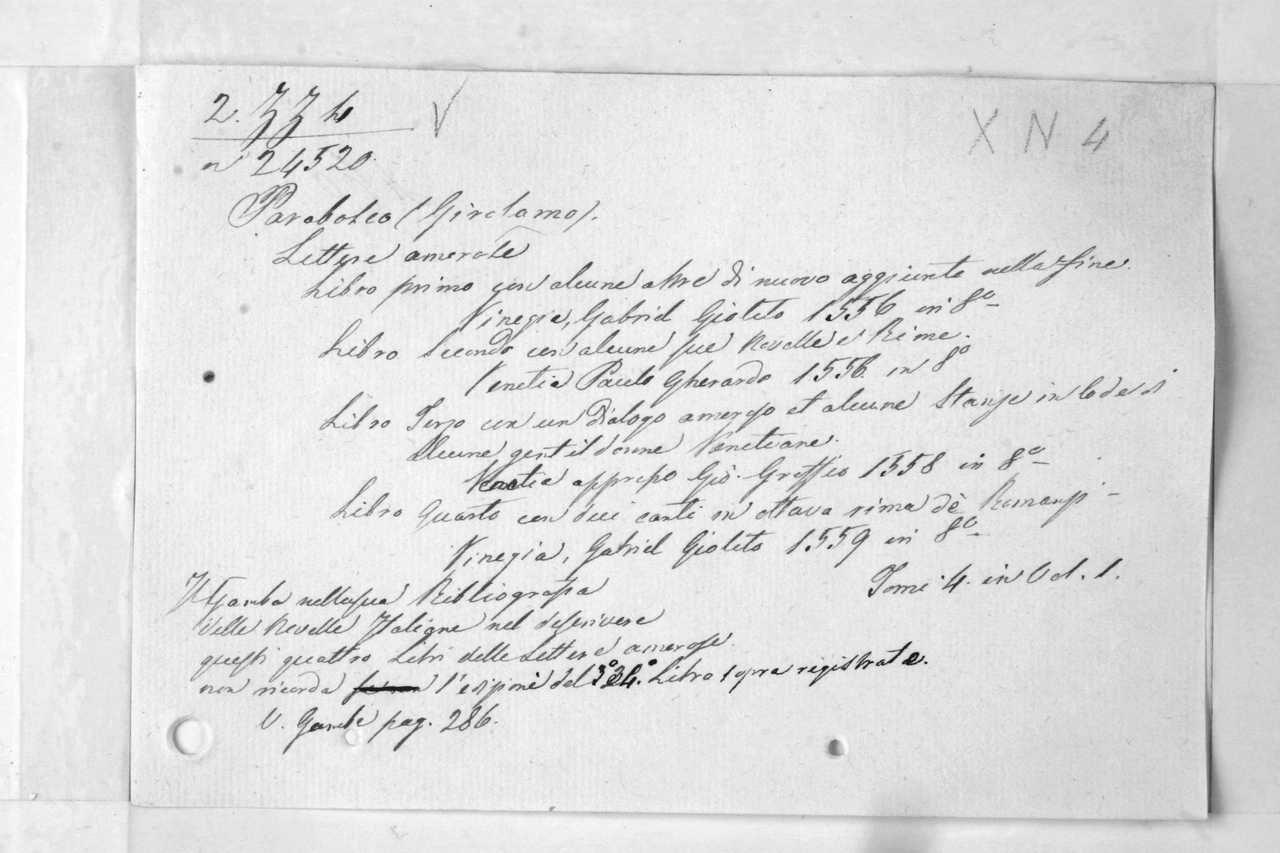 2. ZZ h V
n 24520.
X N 4
Parabosco (Girolamo).
Lettere amorose
Libro primo con alcune altre di nuovo aggiunte nella fine.
Vinegia, Gabriel Giolito 1556 in 8º
Libro Secondo con alcune sue Novelle e Rime.
Venetia Paulo Gherardo 1556 in 8º
Libro Terzo con un Dialogo amoroso et alcune Stanze in lode di
alcune gentil donne Venetiane.
Venetia appresso Gio. Griffio 1558 in 8º
Libro Quarto con dui canti in ottava rima de Romanzi
Vinegia, Gabriel Giolito 1559 in 8º
Tomi 4. in Vol. 1.
Il Gamba nella sua Bibliografia
delle Novelle Italiane nel descrivere
questi quattro Libri delle Lettere amorose
non ricorda l'edizione del 3º e 4º Libro sopra registrate.
V. Gamba pag. 286.